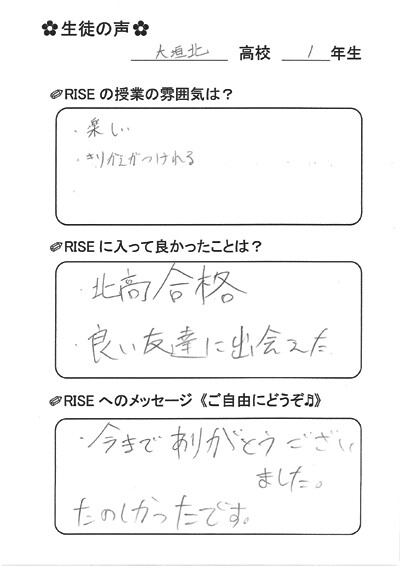 ✿生徒の声✿
大垣北 高校 1 年生
RISEの授業の雰囲気は？
・楽しい
・きりかえがつけれる
RISEに入って良かったことは？
・北高合格
・良い友達に出会えた
RISEへのメッセージ《ご自由にどうぞ♫》
・今までありがとうござい
ました。
たのしかったです。